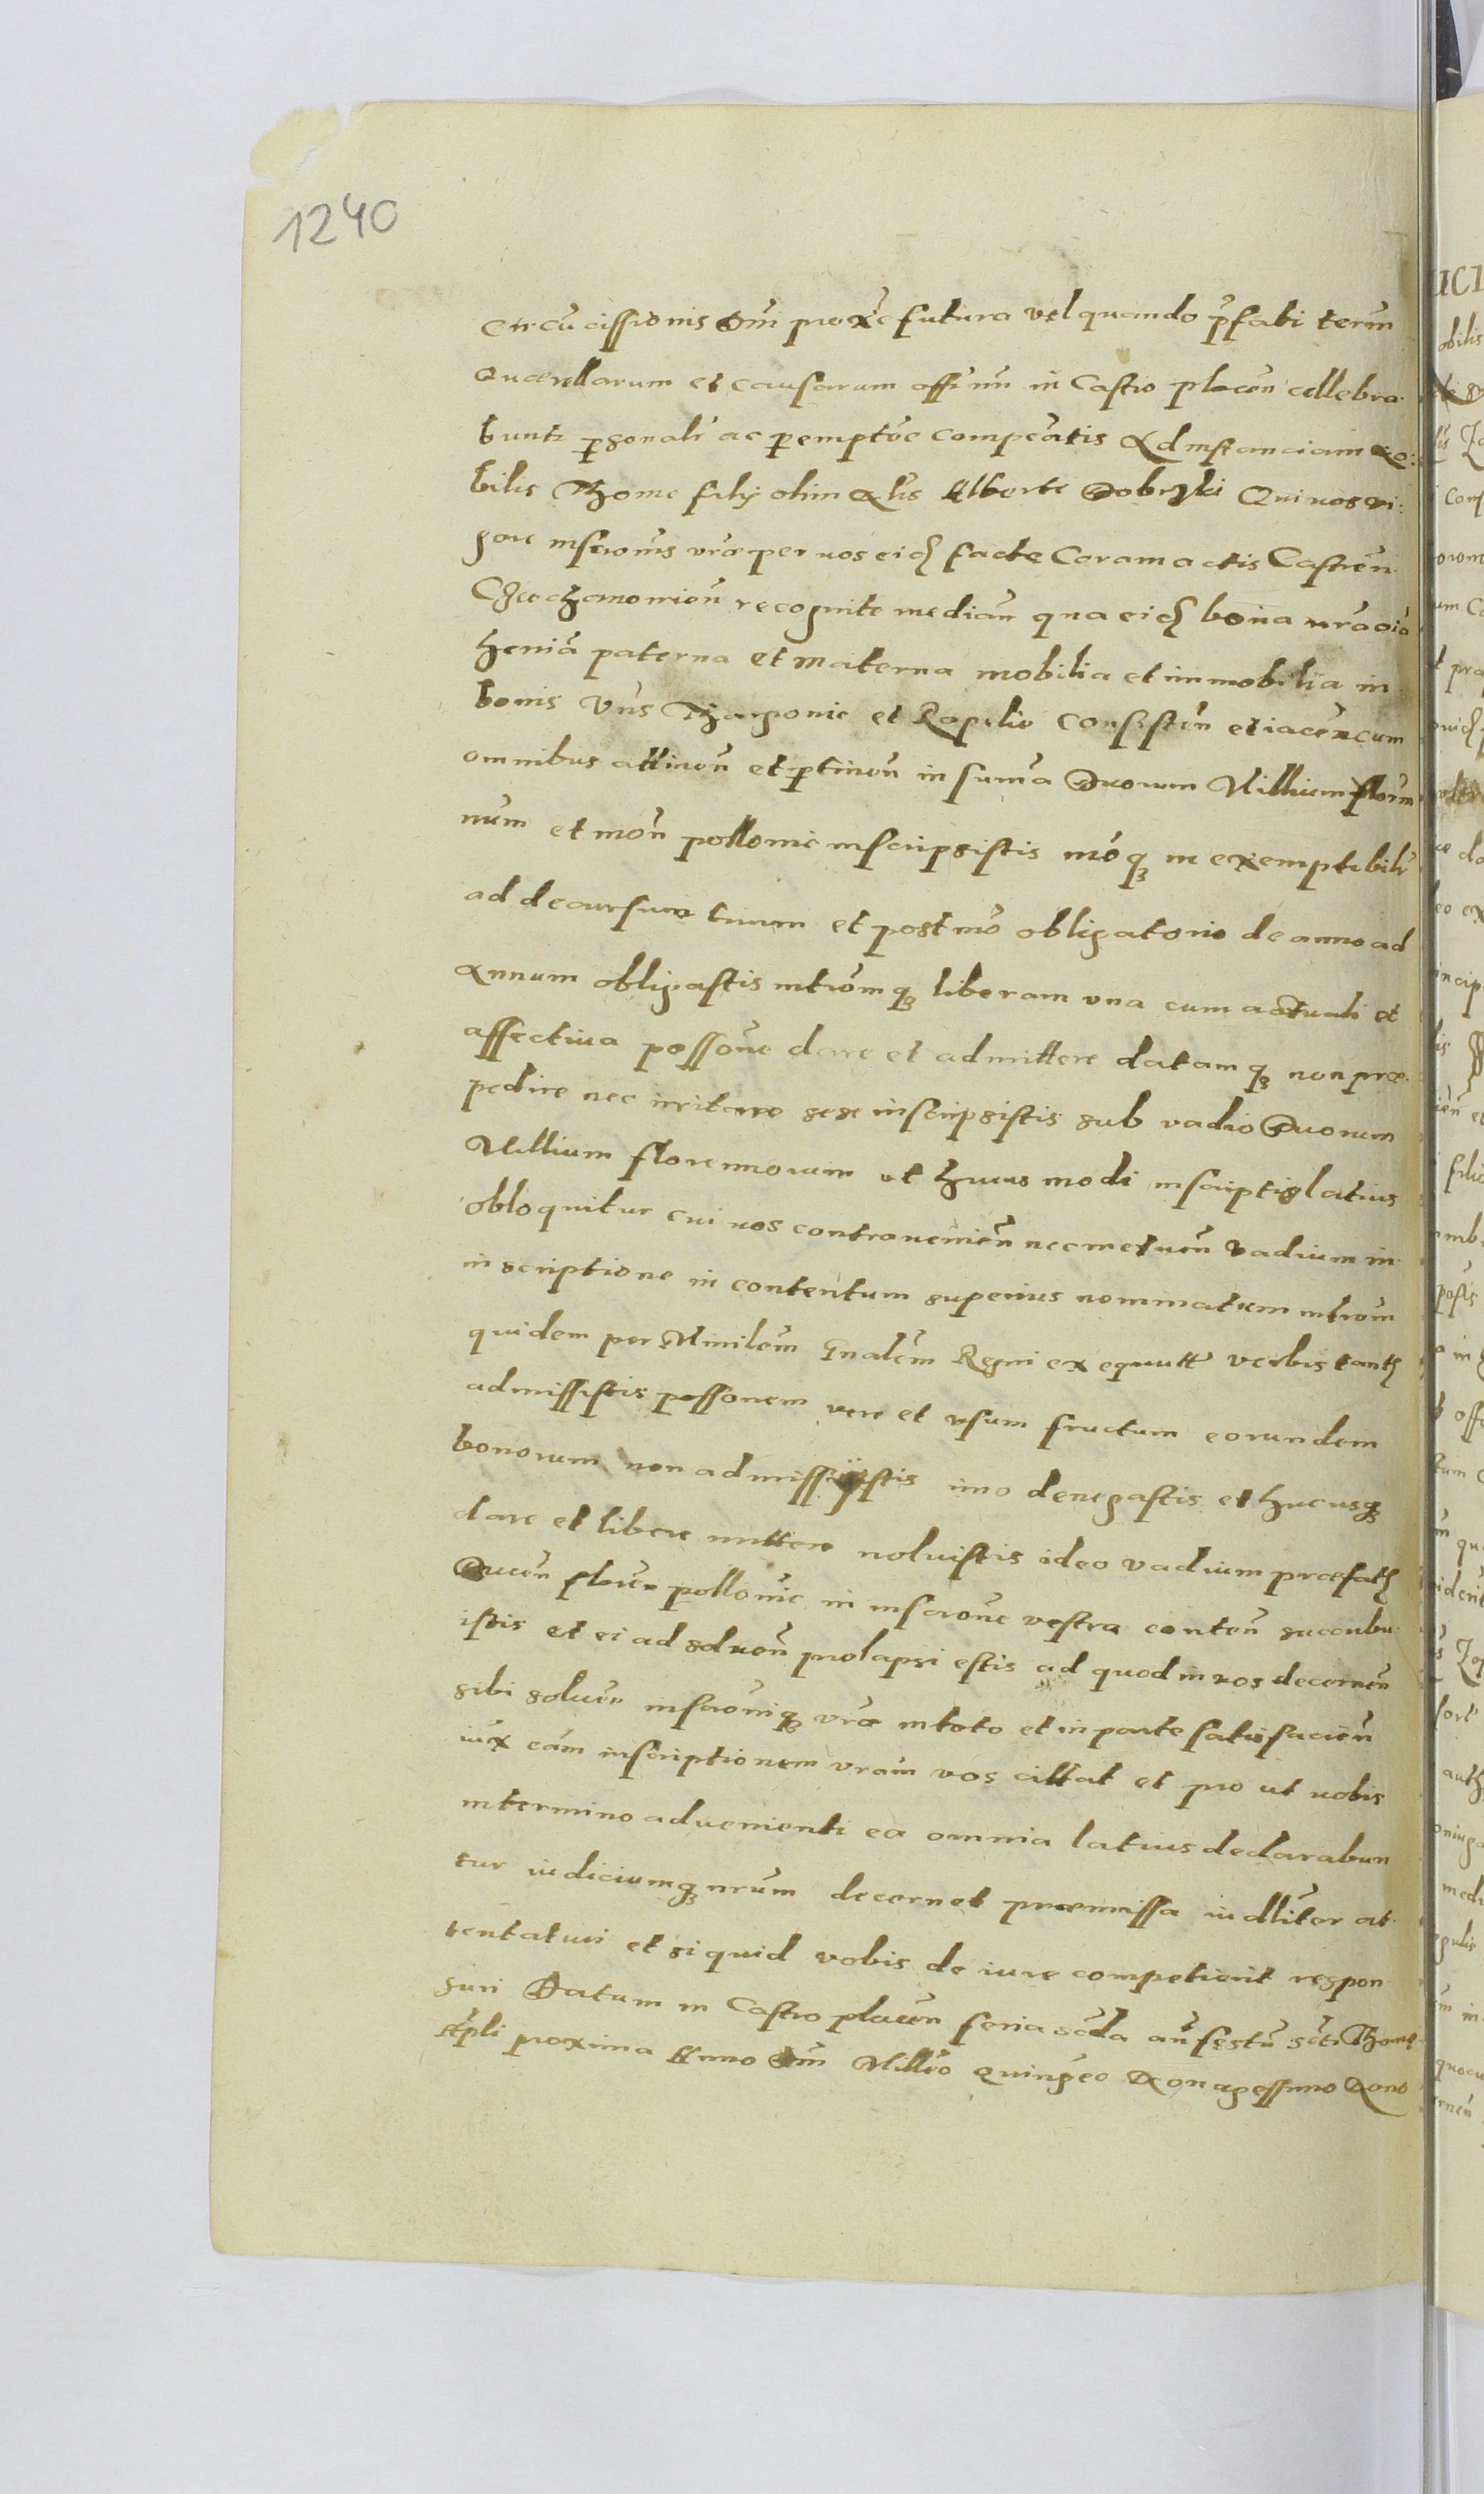 1240
Circucissionis Dni proxie futura vel quando pfati termi
Quærellarum et causarum offinm in Castro plocen cellebra-
buntr psonalr ac peremptoe compeatis Ad instanciam No:
bilis Thome filÿ olim Nlis Alberti Dobrzki Qui vos vi:
gore inscronis vræ per vos eidem facte Coram actis Castren
Ciechanowien recognite median qua eidem bona vra oia
heria paterna et materna mobilia et immobilia in
bonis Vris et Ropelie consisten et iacen cum
omnibus attinen et ptinen in suma Duorum Millium flore
num et mon pollonic inscripsistis moq in exemptibili
ad decursum tuum et post mo obligatorio de anno ad
Annum obligastis intromq liberam una cum actuali et
affectiva possone dare et admittere datamq non præ-
pedire nec irritare sese inscripsistis sub vadio Duorum
Millium florennorum ut huius modi inscriptio latius
obloquitur cui vos contravenien nec metuen vadium in
inscriptione in contentum superius nominatum introm
quidem per Minilem Gnalem Regni exequutt verbis tantum
admissistis possonem vero et usum fructum eorundem
bonorum non admissistis imo denegastis et hucusq
dare et libere mittere noluistis ideo vadium præfatum
Ducen floren pollonic in inscrone vestra conten succubu
istis et ei ad solven prolapsi estis ad quod in vos decernen
sibi solven inscroniq vræ in toto et in parte satisfacien
iux eam inscriptionem vram vos cittat et pro ut vobis
in termino advenienti ea omnia latius declarabun
tur iudiciumq nrum decernet præmissa iudlliter at
tentaturi et si quid vobis de iure competierit respon
suri Datum in Castro plocen feria scda an festu scti Thome
Apli proxima Anno Dni Millmo Quingeo Nonagessimo Nono